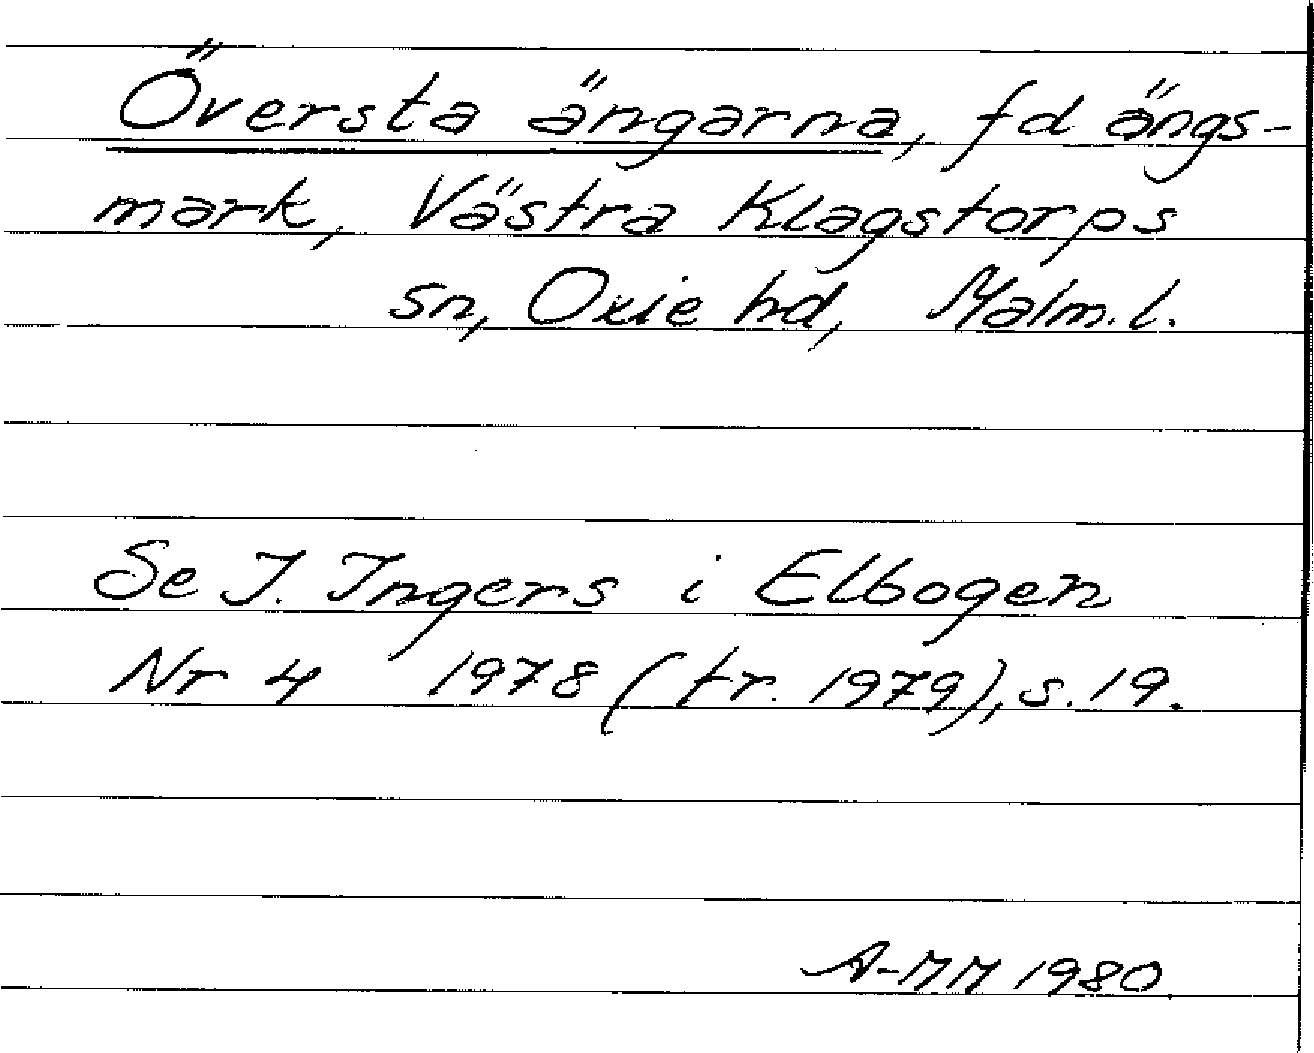 Översta ängarna, fd ängs-
mark, Västra Klagstorps
sn, Oxie hd, Malm. l.
Se I. Ingers i Elbogen
Nr 4 1978 (tr. 1979), s. 19.
A-MM 1980.